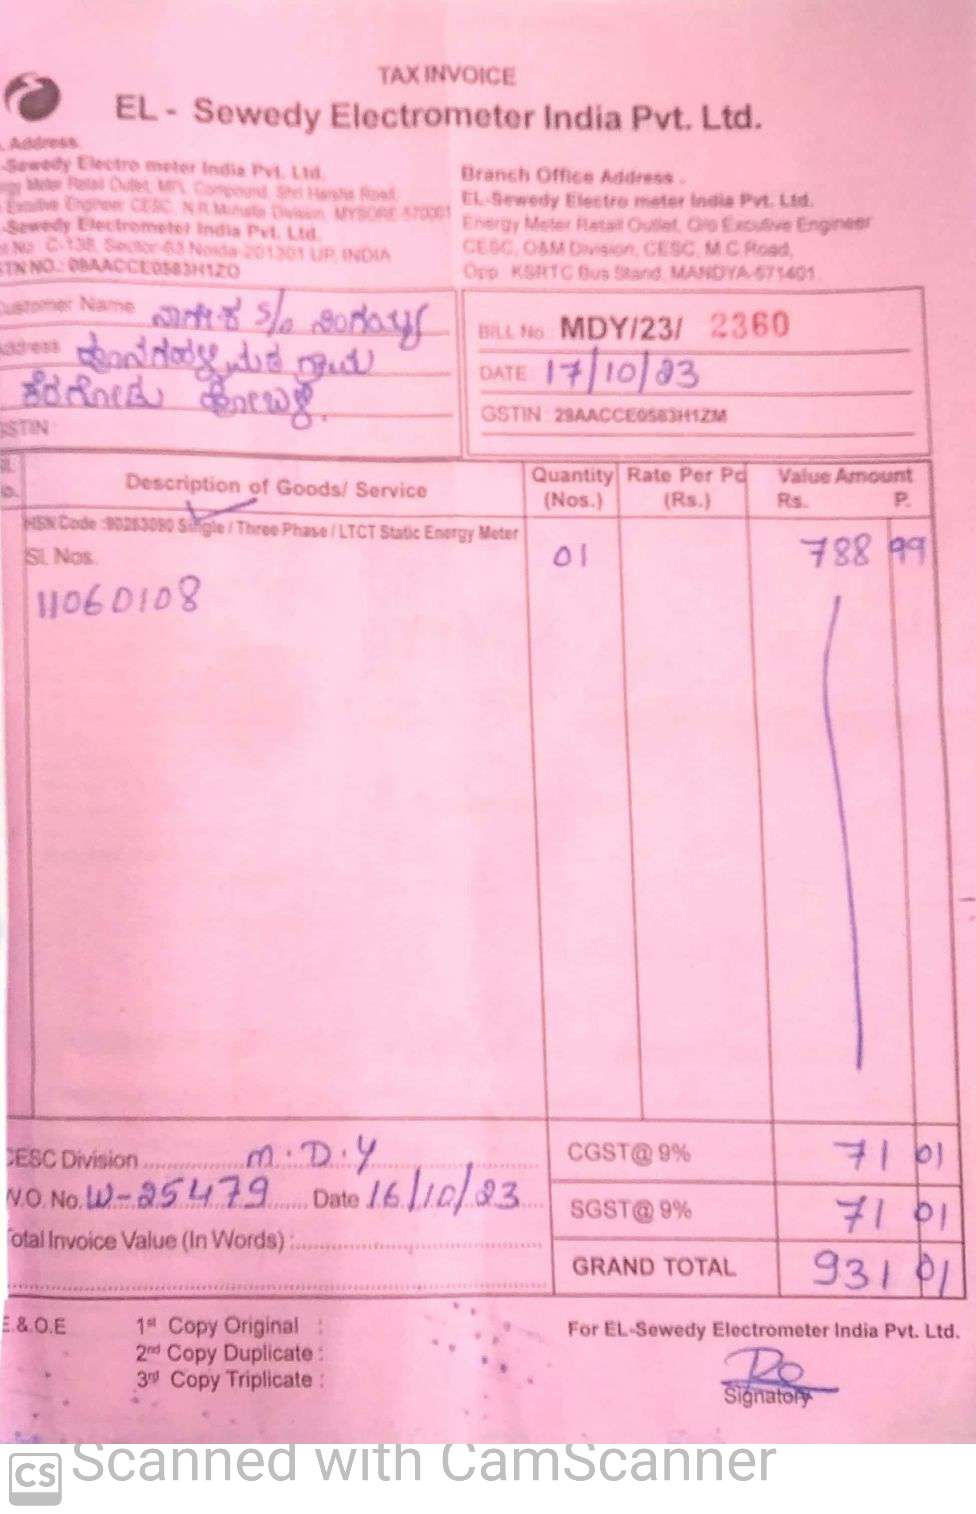 TAX INVOICE
EL - Sewedy Electrometer India Pvt. Ltd.
Address
-Sewedy Electro meter India Pvt. Ltd.
Meter Retail Outlet, MPL Compound, Shri Harsha Road,
Executive Engineer CESC, N.R.Mohalla Division, MYSORE-570001
-Sewedy Electrometer India Pvt. Ltd.
No. C-138, Sector-63 Noida-201301 UP, INDIA
TIN NO.: 09AACCE0583H1ZO
Branch Office Address .
EL-Sewedy Electro meter India Pvt. Ltd.
Energy Meter Retail Outlet, O/o Excutive Engineer
CESC, O&M Division, CESC, M.C.Road,
Opp. KSRTC Bus Stand, MANDYA-571401.
Customer Name S/o
Address
GSTIN
BILL No. MDY/23/ 2360
DATE 17/10/23
GSTIN : 29AACCE0583H1ZM
Description of Goods/ Service
Quantity (Nos.)
Rate Per Pc (Rs.)
Value Amount
Rs. P.
HSN Code :90283090 Single / Three Phase / LTCT Static Energy Meter
Sl. Nos. 01 788 99
11060108
CESC Division M.D.Y
W.O. No. W-25479 Date 16/10/23
Total Invoice Value (In Words) :
CGST@ 9% 71 01
SGST@ 9% 71 01
GRAND TOTAL 931 01
E.& O.E
1st Copy Original :
2nd Copy Duplicate :
3rd Copy Triplicate :
For EL-Sewedy Electrometer India Pvt. Ltd.
Signatory
CS Scanned with CamScanner